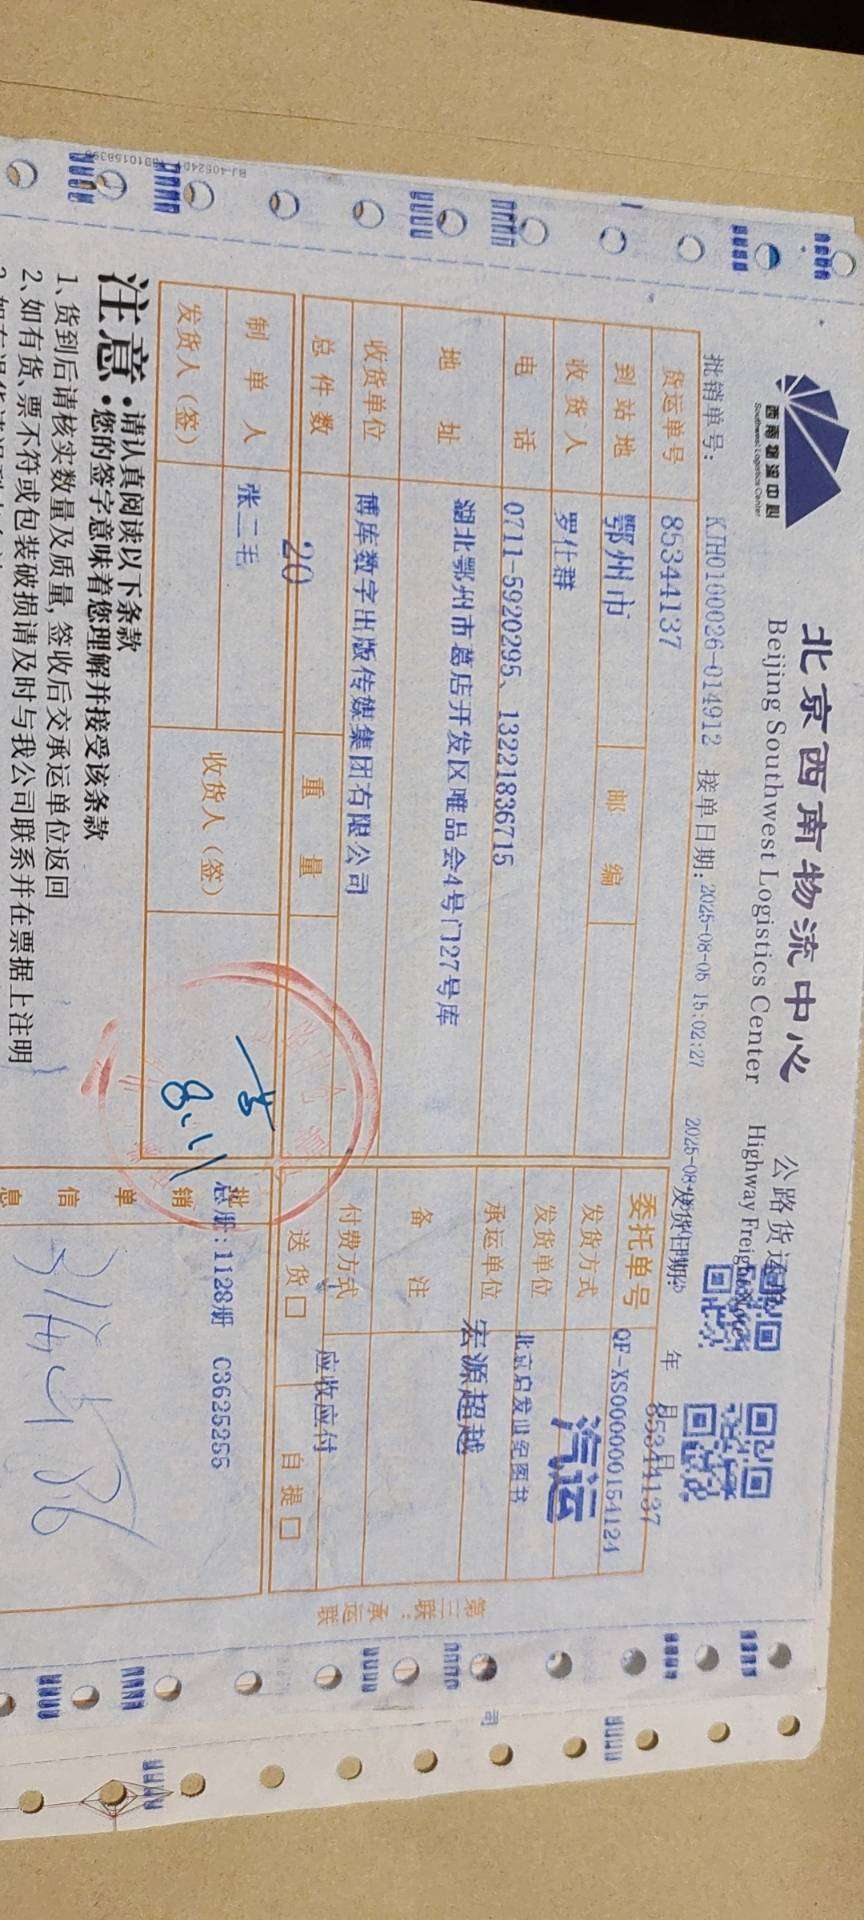 西南物流中心
Southwest Logistics Center
北京西南物流中心 公路货运单
Beijing Southwest Logistics Center Highway Freight Note
批销单号: KJH0100026-014912 接单日期: 2025-08-05 15:02:27 发货日期: 年 月 日
货运单号 85344137 委托单号 QF-XS0000000154124
85344137
到站地 鄂州市 邮编 发货方式 汽运
收货人 罗仕群 发货单位 北京启发世纪图书
电话 0711-5920295、13221836715 承运单位 宏源超越
地址 湖北鄂州市葛店开发区唯品会4号门27号库 备注
收货单位 博库数字出版传媒集团有限公司 付费方式 应收应付
总件数 20 重量 送货□ 自提□
制单人 张二毛 收货人(签) 批销单信息 总册:1128册 C3625255
发货人(签)
第三联:承运联
注意:请认真阅读以下条款
您的签字意味着您理解并接受该条款
1、货到后请核实数量及质量,签收后交承运单位返回
2、如有货、票不符或包装破损请及时与我公司联系并在票据上注明